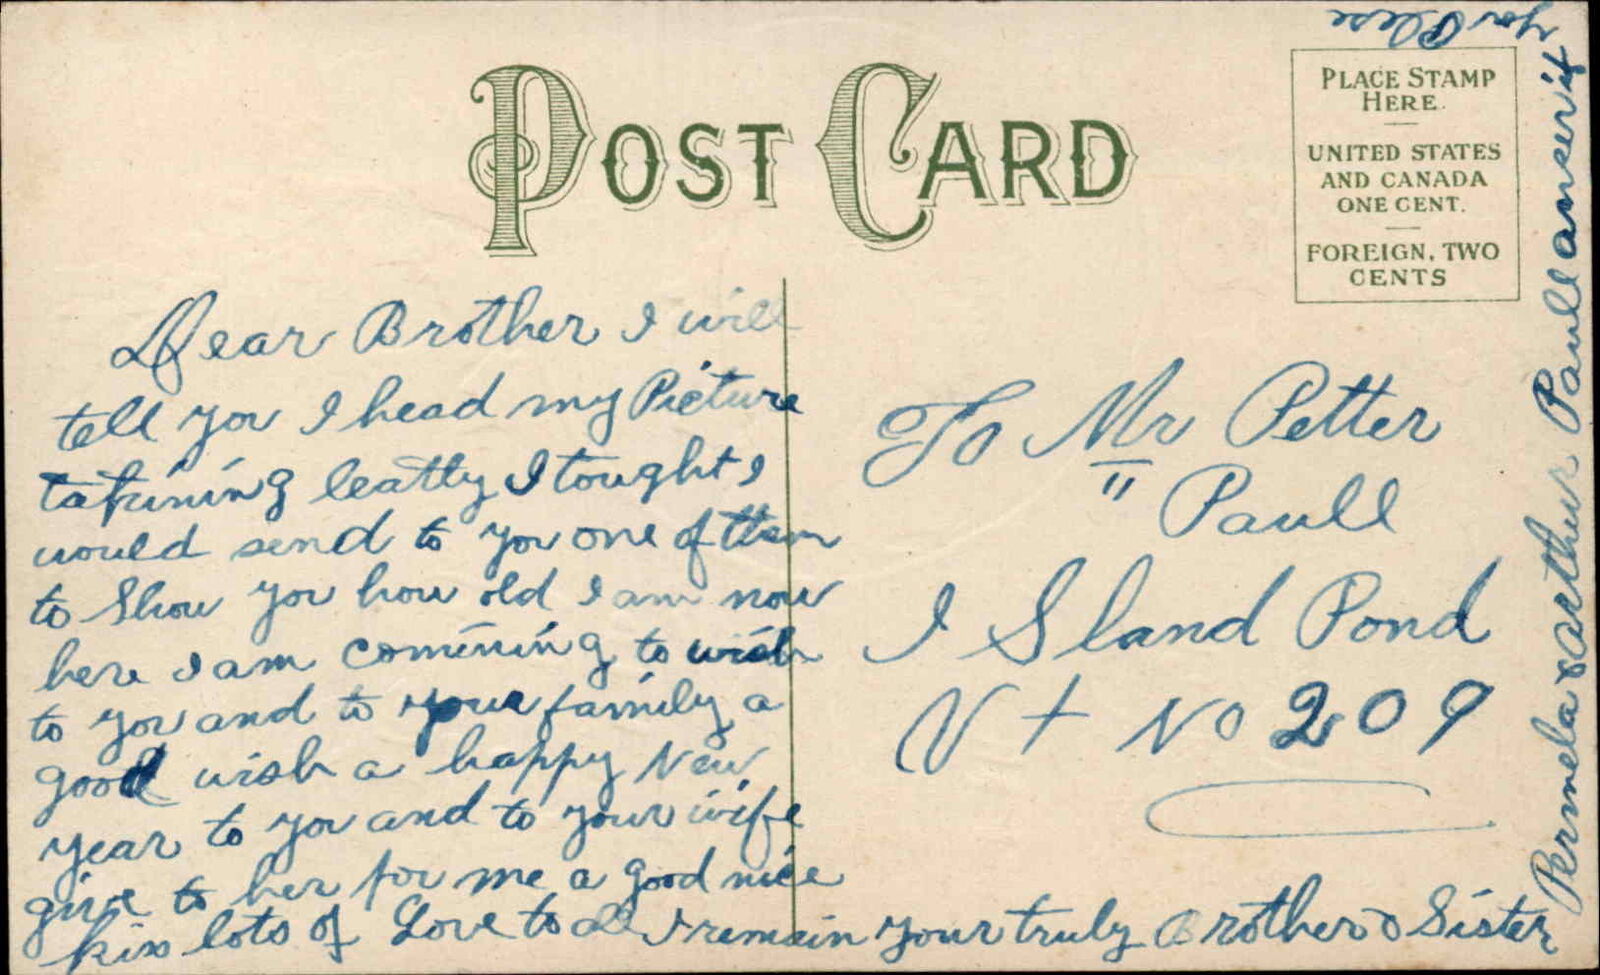 POST CARD
PLACE STAMP
HERE.
UNITED STATES
AND CANADA
ONE CENT.
FOREIGN, TWO
CENTS
Dear Brother I will
tell you I head my Picture
takining leatly I tought I
would send to you one of them
to Show you how old I am now
here I am comining to wish
to you and to your family a
good wish a happy New
year to you and to your wife
give to her for me a good nice
kiss lots of Love to all I remain your truly Brother & Sister
Permela & arthur Paull answer it
you Plese
To Mr Petter
" Paull
I Sland Pond
Vt No 209